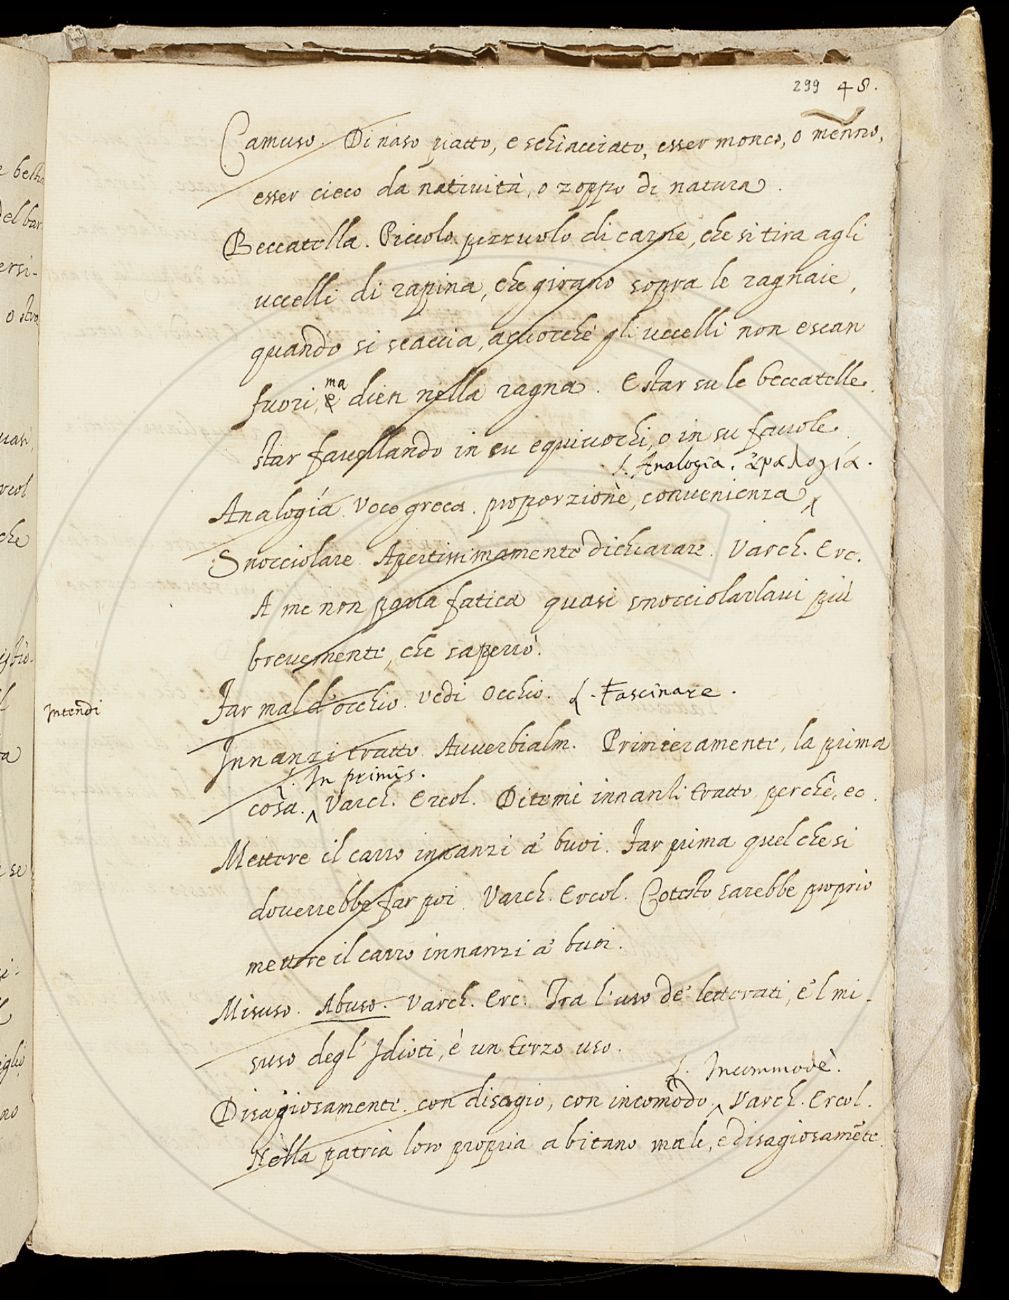 299 48.
Camuso. Di naso piatto, e schiacciato, esser monco, o menno,
esser cieco da natività, o zoppo di natura.
Beccatella. Piccolo pezzuolo di carne, che si tira agli
uccelli di rapina, che girano sopra le ragnaie,
quando si scaccia, acciocchè gli uccelli non escan
fuori, ma dien nella ragna. E star su le beccatelle.
star favellando in su equivochi, o in su favole.
L. Analogia. ἀναλογία.
Analogía. Voce greca. proporzione, convenienza
Snocciolare. Apertissimamente dichiarare. Varch. Erc.
A me non parrà fatica quasi snocciolarlavi più
brevemente, che saperrò.
Far mal d'occhio. vedi Occhio. L. Fascinare.
Intendi
Innanzi tratto. Avverbialm. Primieramente, la prima
In primis.
cosa. Varch. Ercol. Ditemi innanzi tratto perchè, ec.
Mettere il carro innanzi a' buoi. Far prima quel che si
doverrebbe far poi. Varch. Ercol. Cotesto sarebbe proprio
mettere il carro innanzi a' buoi.
Misuso. Abuso. Varch. Erc. Tra l'uso de' letterati, e 'l mi-
suso degl' Idioti, è un terzo uso.
L. Incommodè.
Disagiosamente. con disagio, con incomodo. Varch. Ercol.
Nella patria loro propria abitano male, e disagiosamēte.